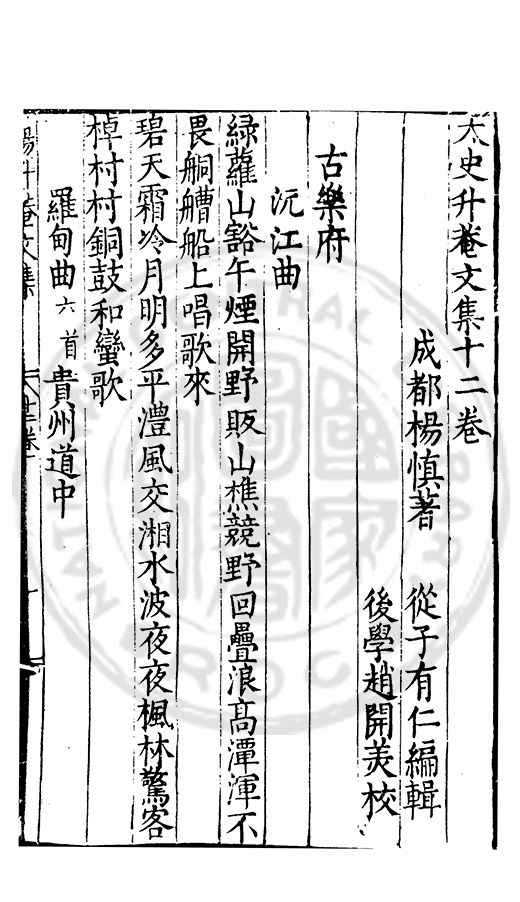 太史升菴文集十二卷
成都楊慎著 從子有仁編輯
後學趙開美校
古樂府
沅江曲
緑蘿山豁午煙開野販山樵競野回疊浪高潭渾不
畏艑艚船上唱歌來
碧天霜冷月明多平澧風交湘水波夜夜楓林驚客
棹村村銅鼓和蠻歌
羅甸曲六首貴州道中